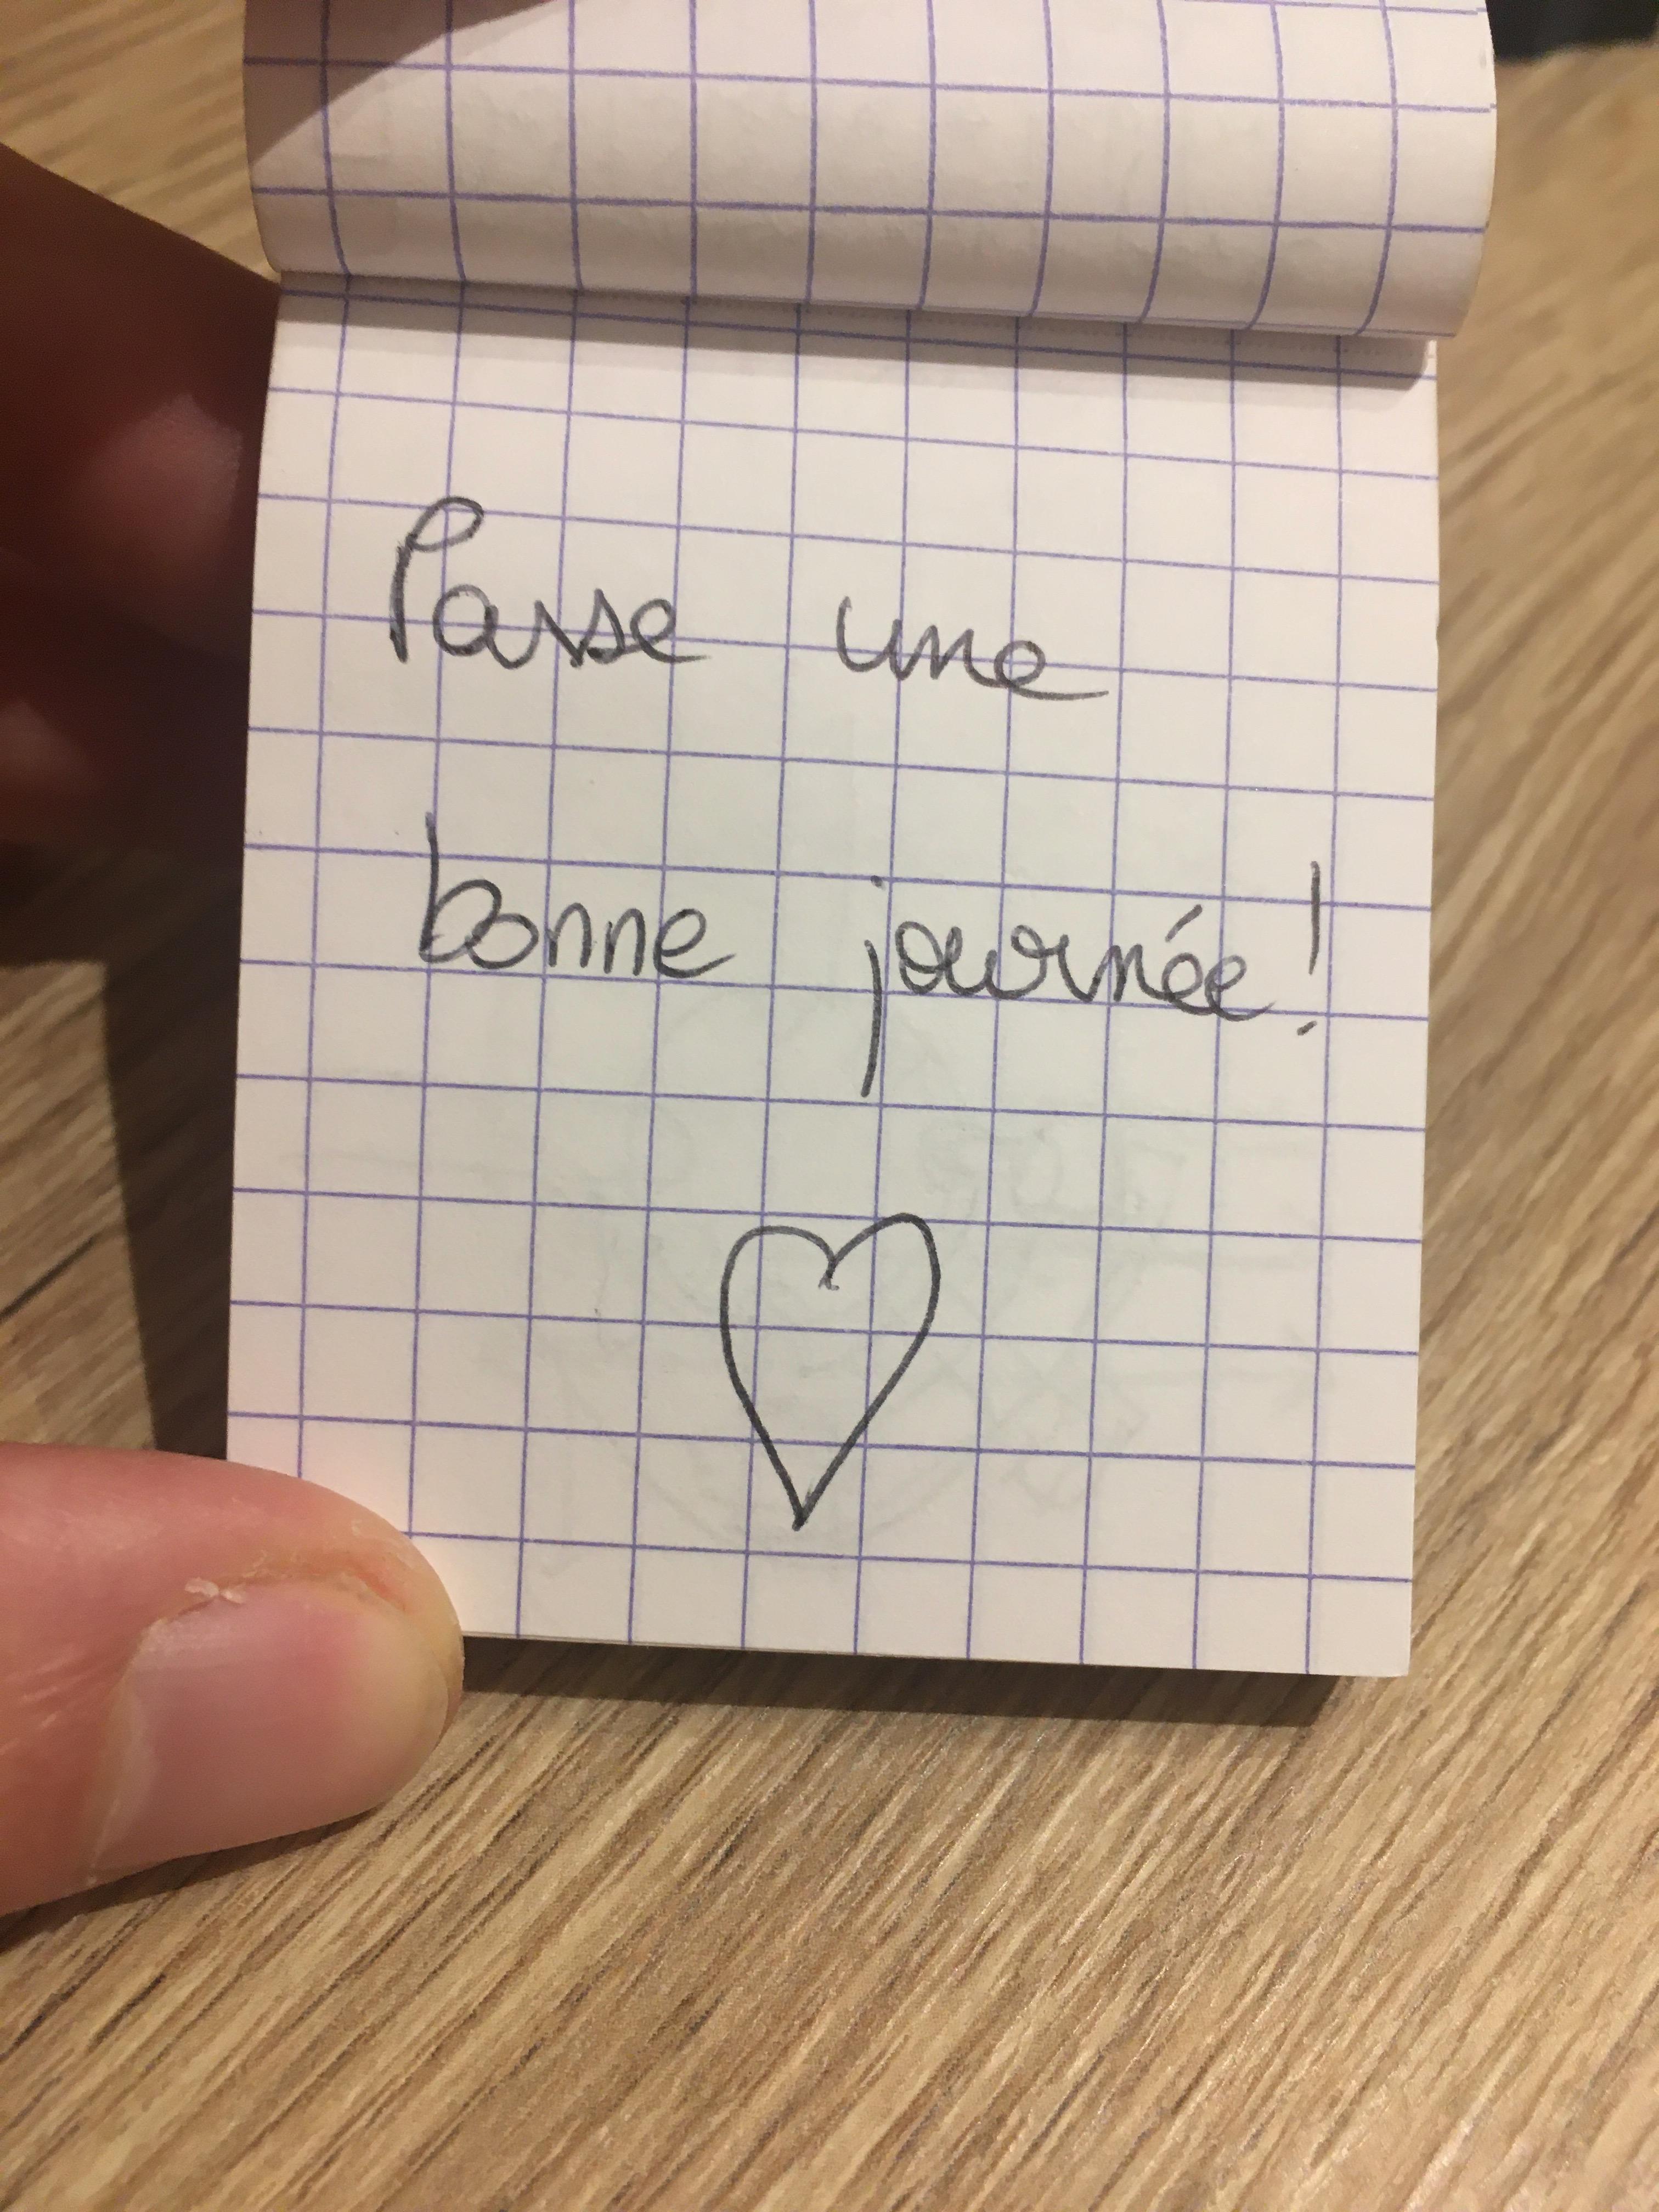 Passe une
bonne journée !